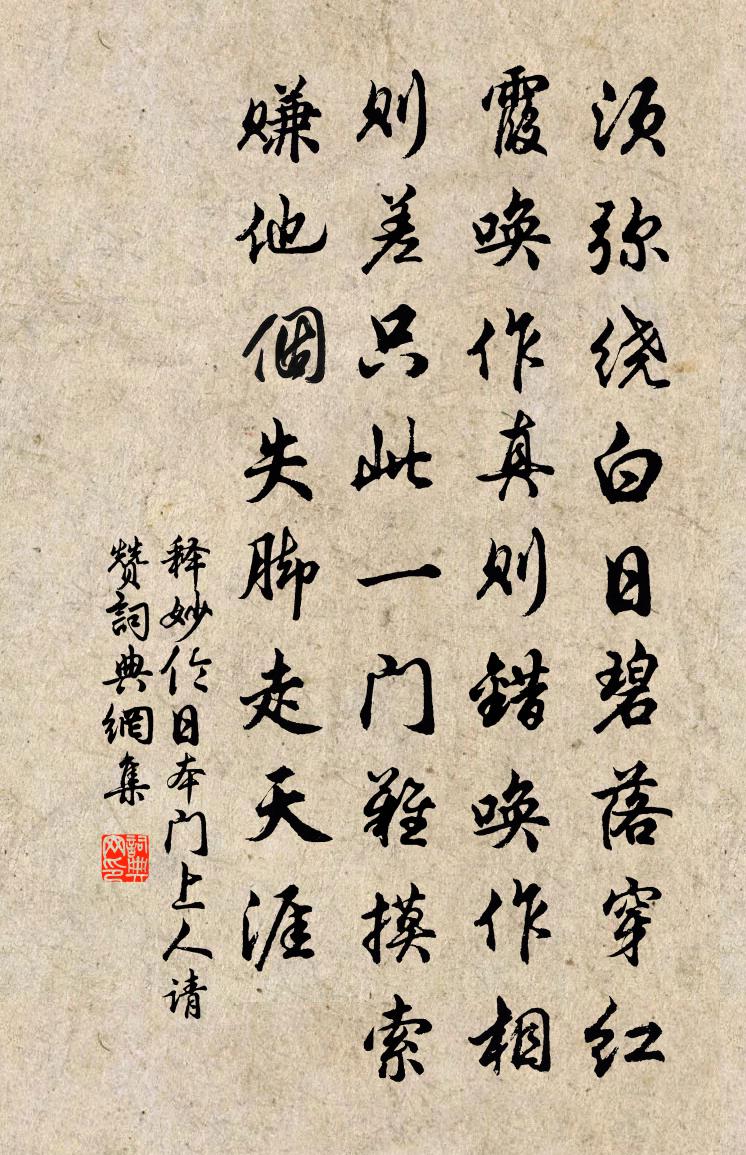 须弥绕白日碧落穿红
霞唤作真则错唤作相
则差只此一门难摸索
赚他個失脚走天涯
释妙伦日本门上人请
赞詞典網集
詞典
网印